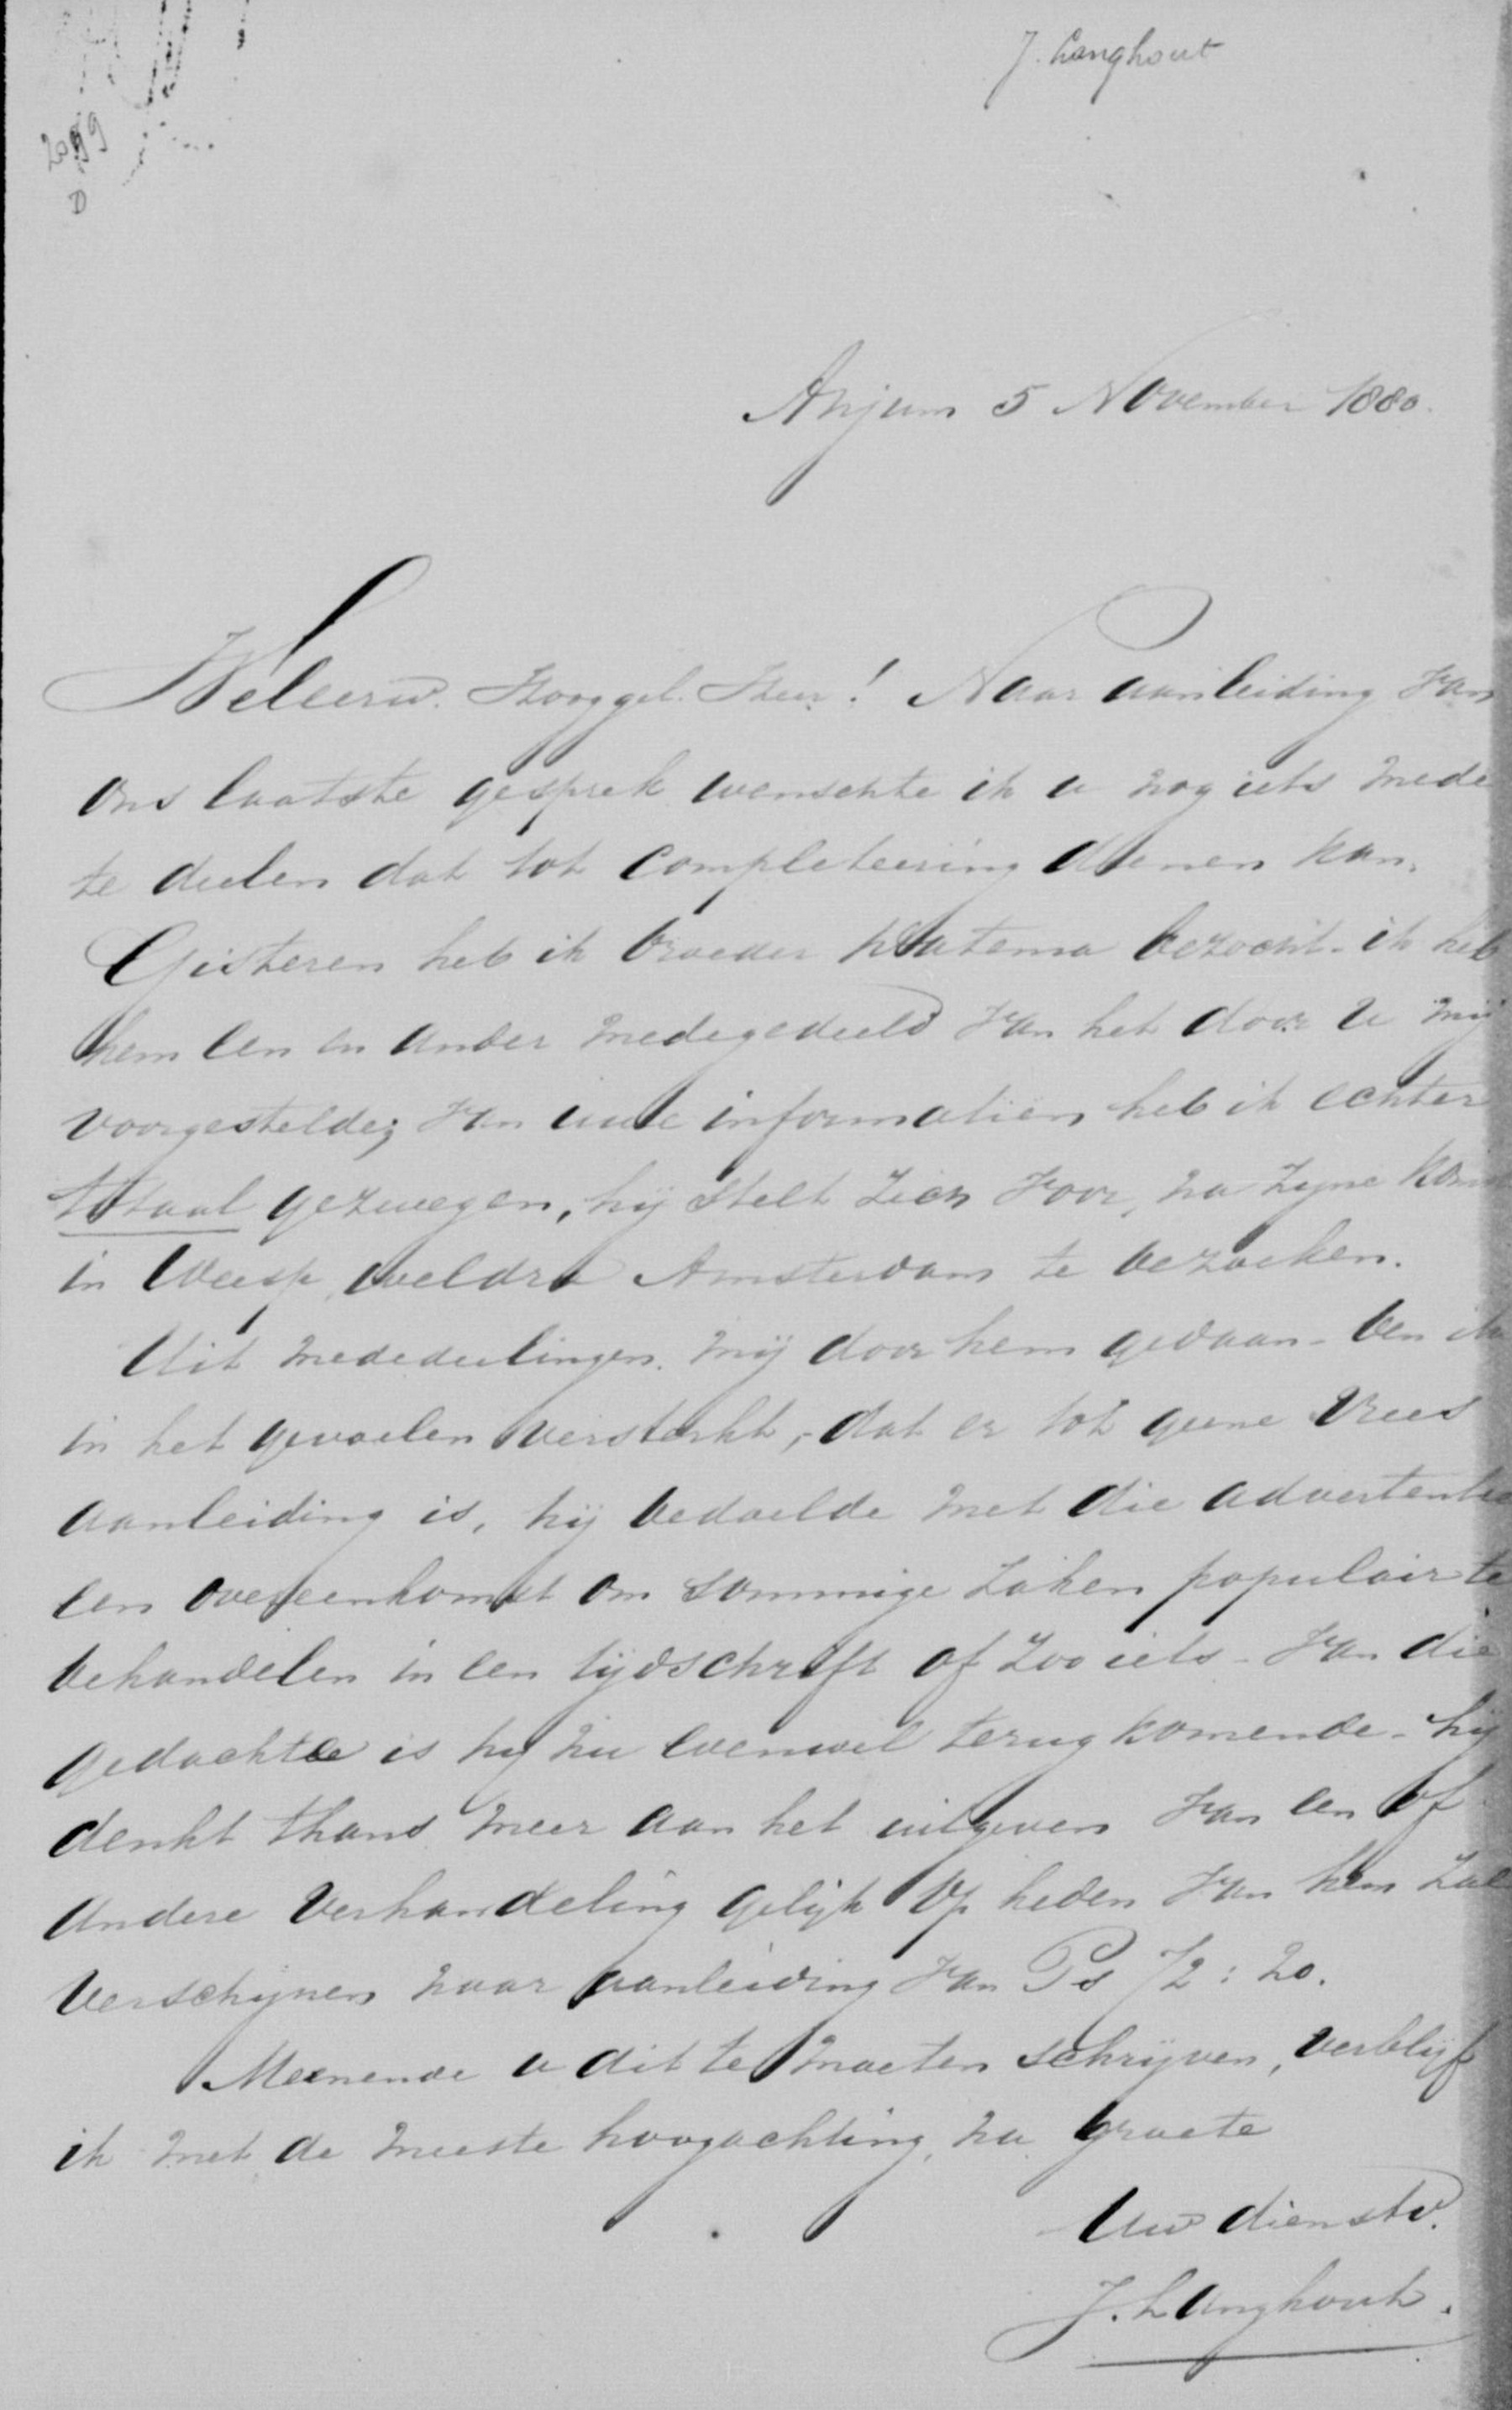 J. Langhout
2099
D
Anjum 5 November 1880.
Weleerw. Hooggel. Heer! Naar aanleiding van
ons laatste gesprek wenschte ik u nog iets mede
te deelen dat tot completeering dienen kan.
Gisteren heb ik broeder bezocht - ik heb
hem een en ander medegedeeld van het door u mij
voorgestelde; van uwe informatiën heb ik echter
totaal gezwegen, hij stelt zich voor, na zijne
in Weesp, weldra Amsterdam te bezoeken.
Uit mededeelingen mij door hem gedaan - ben ik
in het gevoelen versterkt, dat er tot geene vrees
aanleiding is, hij bedoelde met die advertentie
een overeenkomst om sommige zaken populair te
behandelen in een tijdschrift of zoo iets - van die
gedachte is hij nu evenwel terugkomende - hij
denkt thans meer aan het uitgeven van een of
andere verhandeling gelijk op heden van hem zal
verschijnen naar aanleiding van Ps 72:20.
Meenende u dit te moeten schrijven, verblijf
ik met de meeste hoogachting, na groete
Uw dienstv.
J. Langhout.